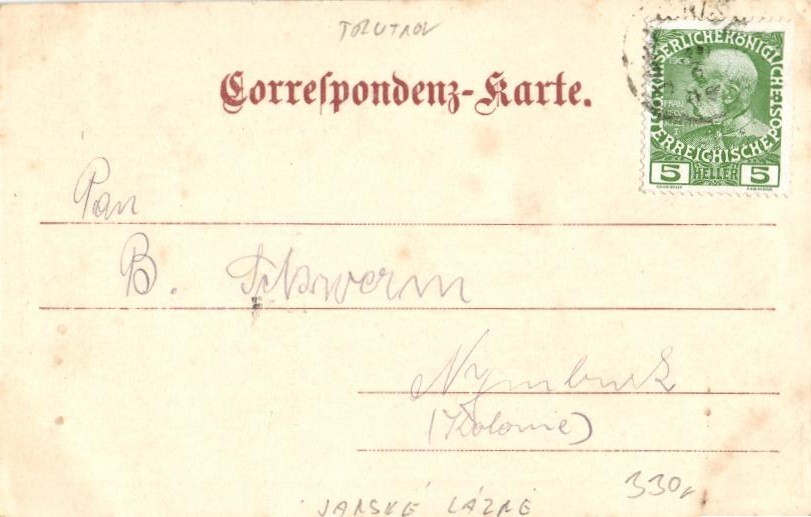 TRUTNOV
Correspondenz-Karte.
KAISERLICHE KÖNIGLICHE
ÖSTERREICHISCHE POST
1908
5 HELLER 5
Pan
B.
Nymburk
(Kolonie)
330,
JANSKÉ LÁZNĚ